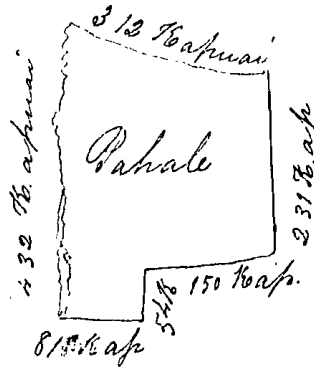 312 Kapuai
432 Kapuai
Pahale
231 Kap
54 K
150 Kap.
Kap